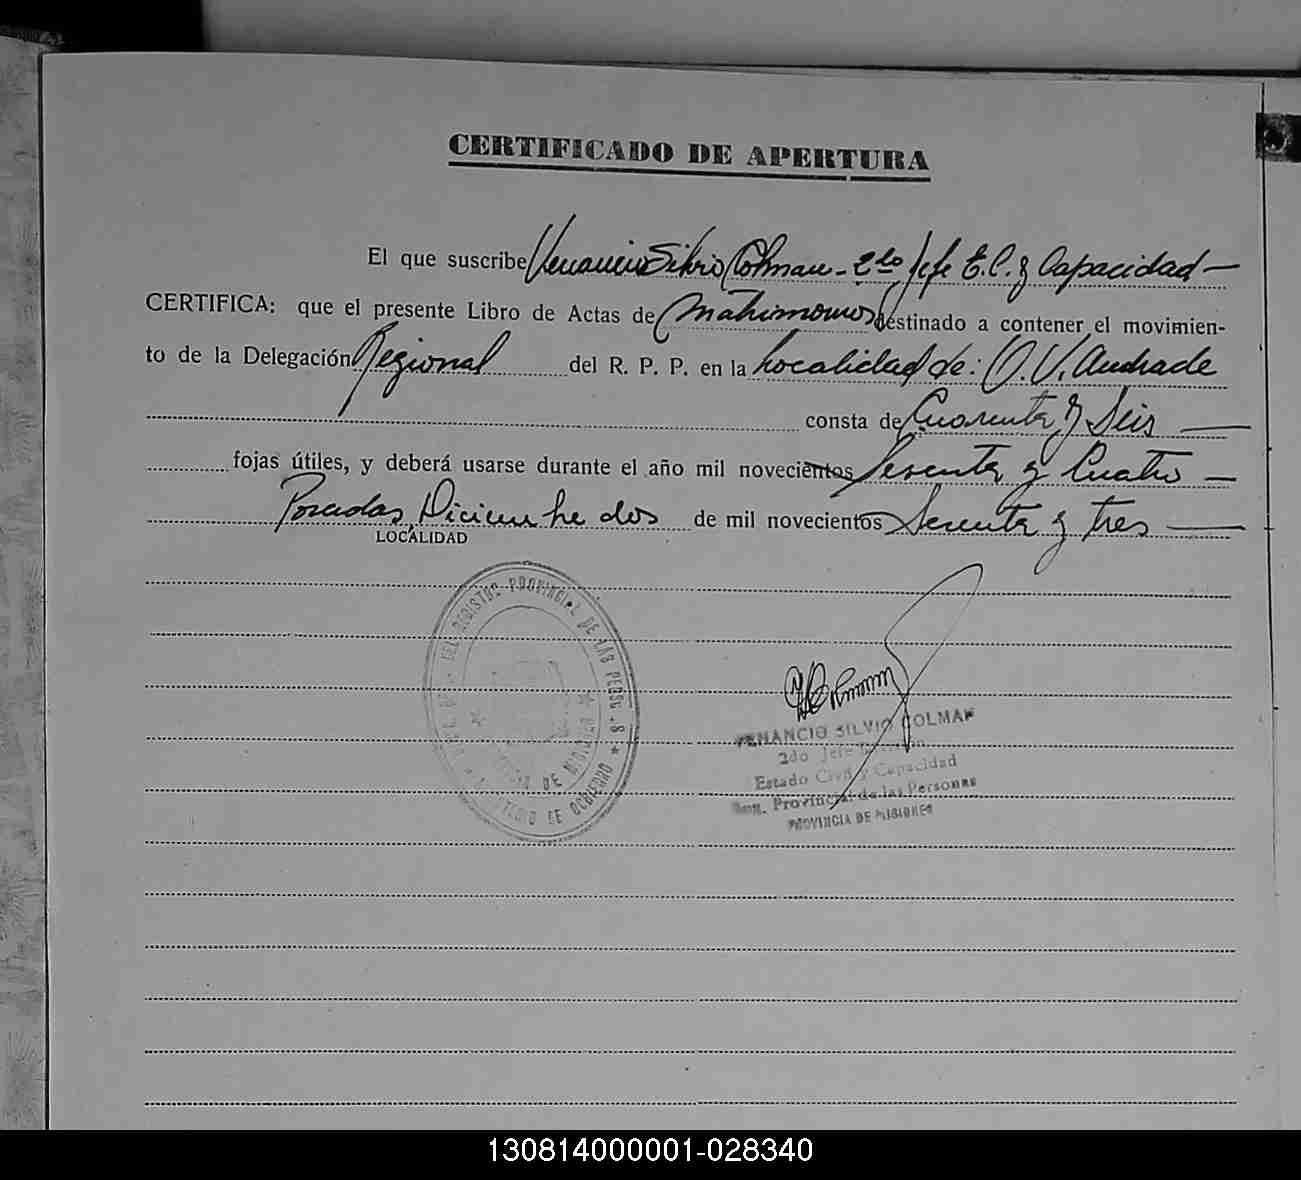 CERTIFICADO DE APERTURA
El que suscribe Venancio Silvio Colman - 2do, Jefe E.C. y Capacidad -
CERTIFICA: que el presente Libro de Actas de Matrimonios destinado a contener el movimien-
to de la Delegación Regional del R. P. P. en la Localidad de: O.V. Andrade
consta de Cuarenta y Seis -
fojas útiles, y deberá usarse durante el año mil novecientos Sesenta y Cuatro -
Posadas, Diciembre dos de mil novecientos Sesenta y tres -
LOCALIDAD
DEL REGISTRO PROVINCIAL DE LAS PERSONAS
DE MISIONES
DE GOBIERNO
VENANCIO SILVIO COLMAN
2do Jefe División
Estado Civil y Capacidad
Provincial de las Personas
PROVINCIA DE MISIONES
130814000001-028340